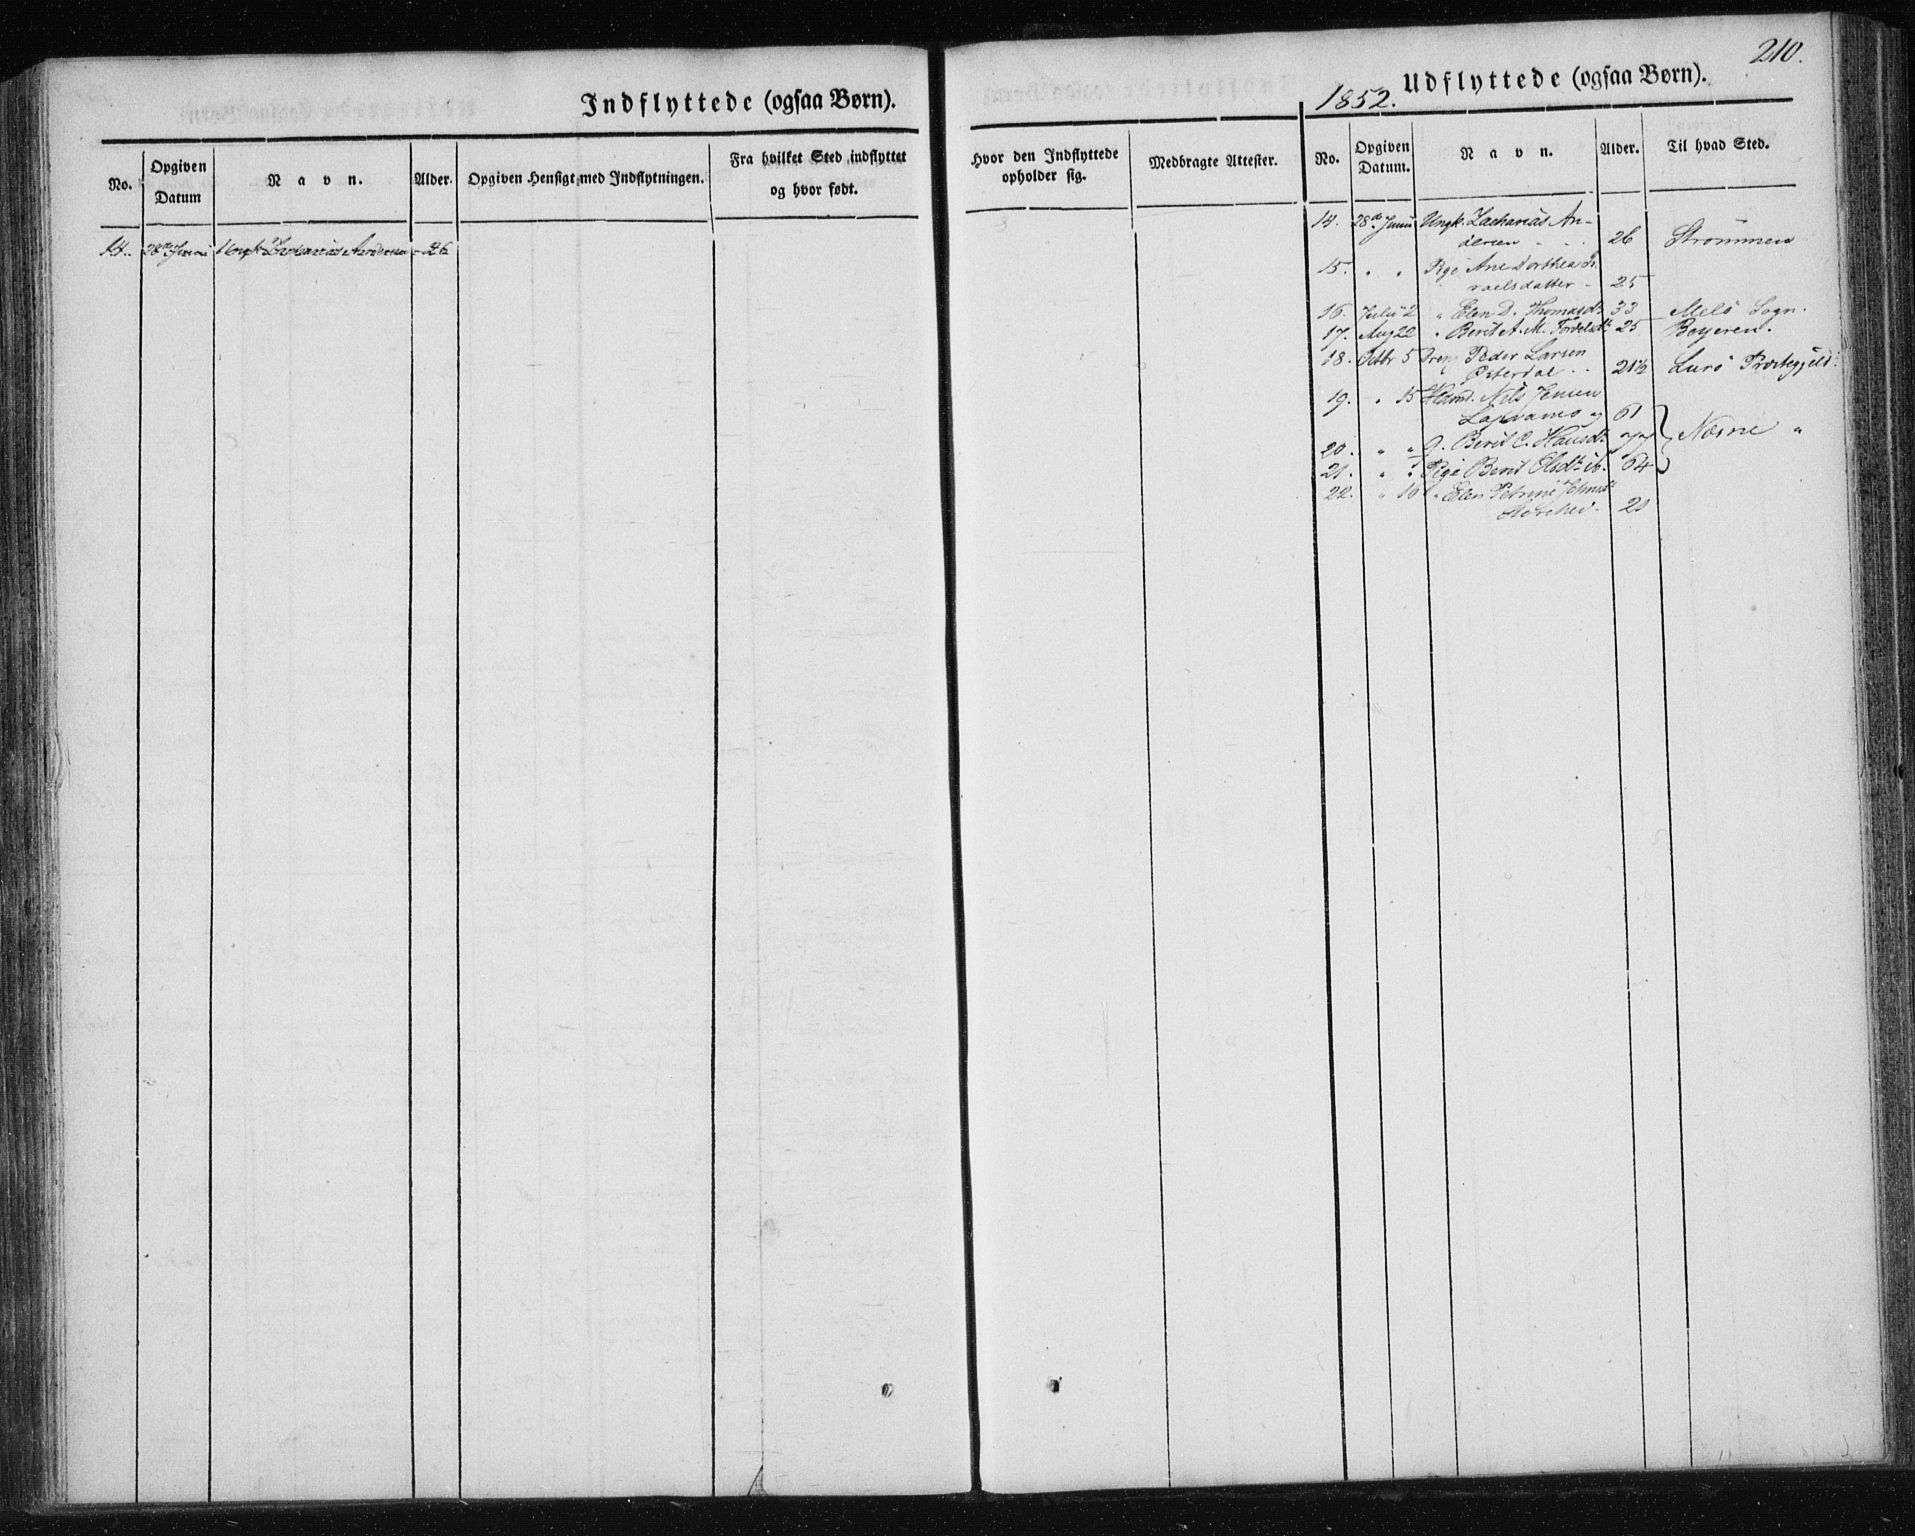 210.
Indflyttede (ogsaa Børn).
1852.
Udflyttede (ogsaa Børn).
No.
Opgiven Datum
Navn.
Alder.
Opgiven Hensigt med Indflytningen.
Fra hvilket Sted indflyttet og hvor født.
Hvor den Indflyttede opholder sig.
Medbragte Attester.
No.
Opgiven Datum.
Navn.
Alder.
Til hvad Sted.
14. 28de Juni Ungk. Zacharias Andersen 26
14. 28de Juni Ungk. Zacharias An-
dersen 26 Strømmen
15. " " Pige Ane Dorthea
raelsdatter 25
16. Juli 2 " Elen D. Thomasdt 33 Melö Sogn.
17. Aug 22 " Berit A. M. 25 Beyeren.
18. Octbr 5 Dreng Peder Larsen
Østerdal 21½ Lurö Præstegjeld
19. " 15 Nils Jensen
og 61
20. " " Berit C. Hansdt
Næsne "
21. " " Pige Berit Olsdt 64
22. " 16 " Elen Petrine
20